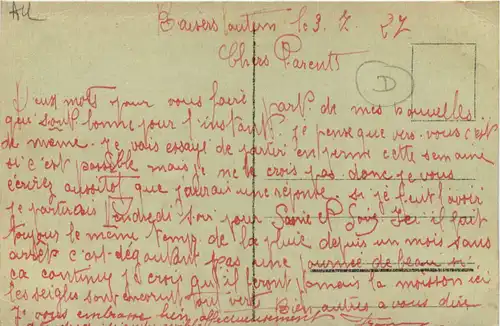 All
Kaiserslautern le 3. 7. 27
Chers Parents
D
Deux mots pour vous faire part de mes nouvelles
qui sont bonne pour l'instant je pense que vers vous c'est
de meme. Je vais essayé de partir en perme cette semaine
si c'est possible mais je ne le crois pas donc je vous
écrirez aussitot que j'aurai une réponse si je peut avoir
je partirais Vendredi soir pour Ici il fait
toujour le meme temp de la pluie depuis un mois sans
arret c'est dégoutant pas une journée de beau si
ca continu je crois qu'il feront jamais la moisson ici
les seigles sont encore tout vert Rien autres a vous dire
Je vous embrasse bien affectueusement